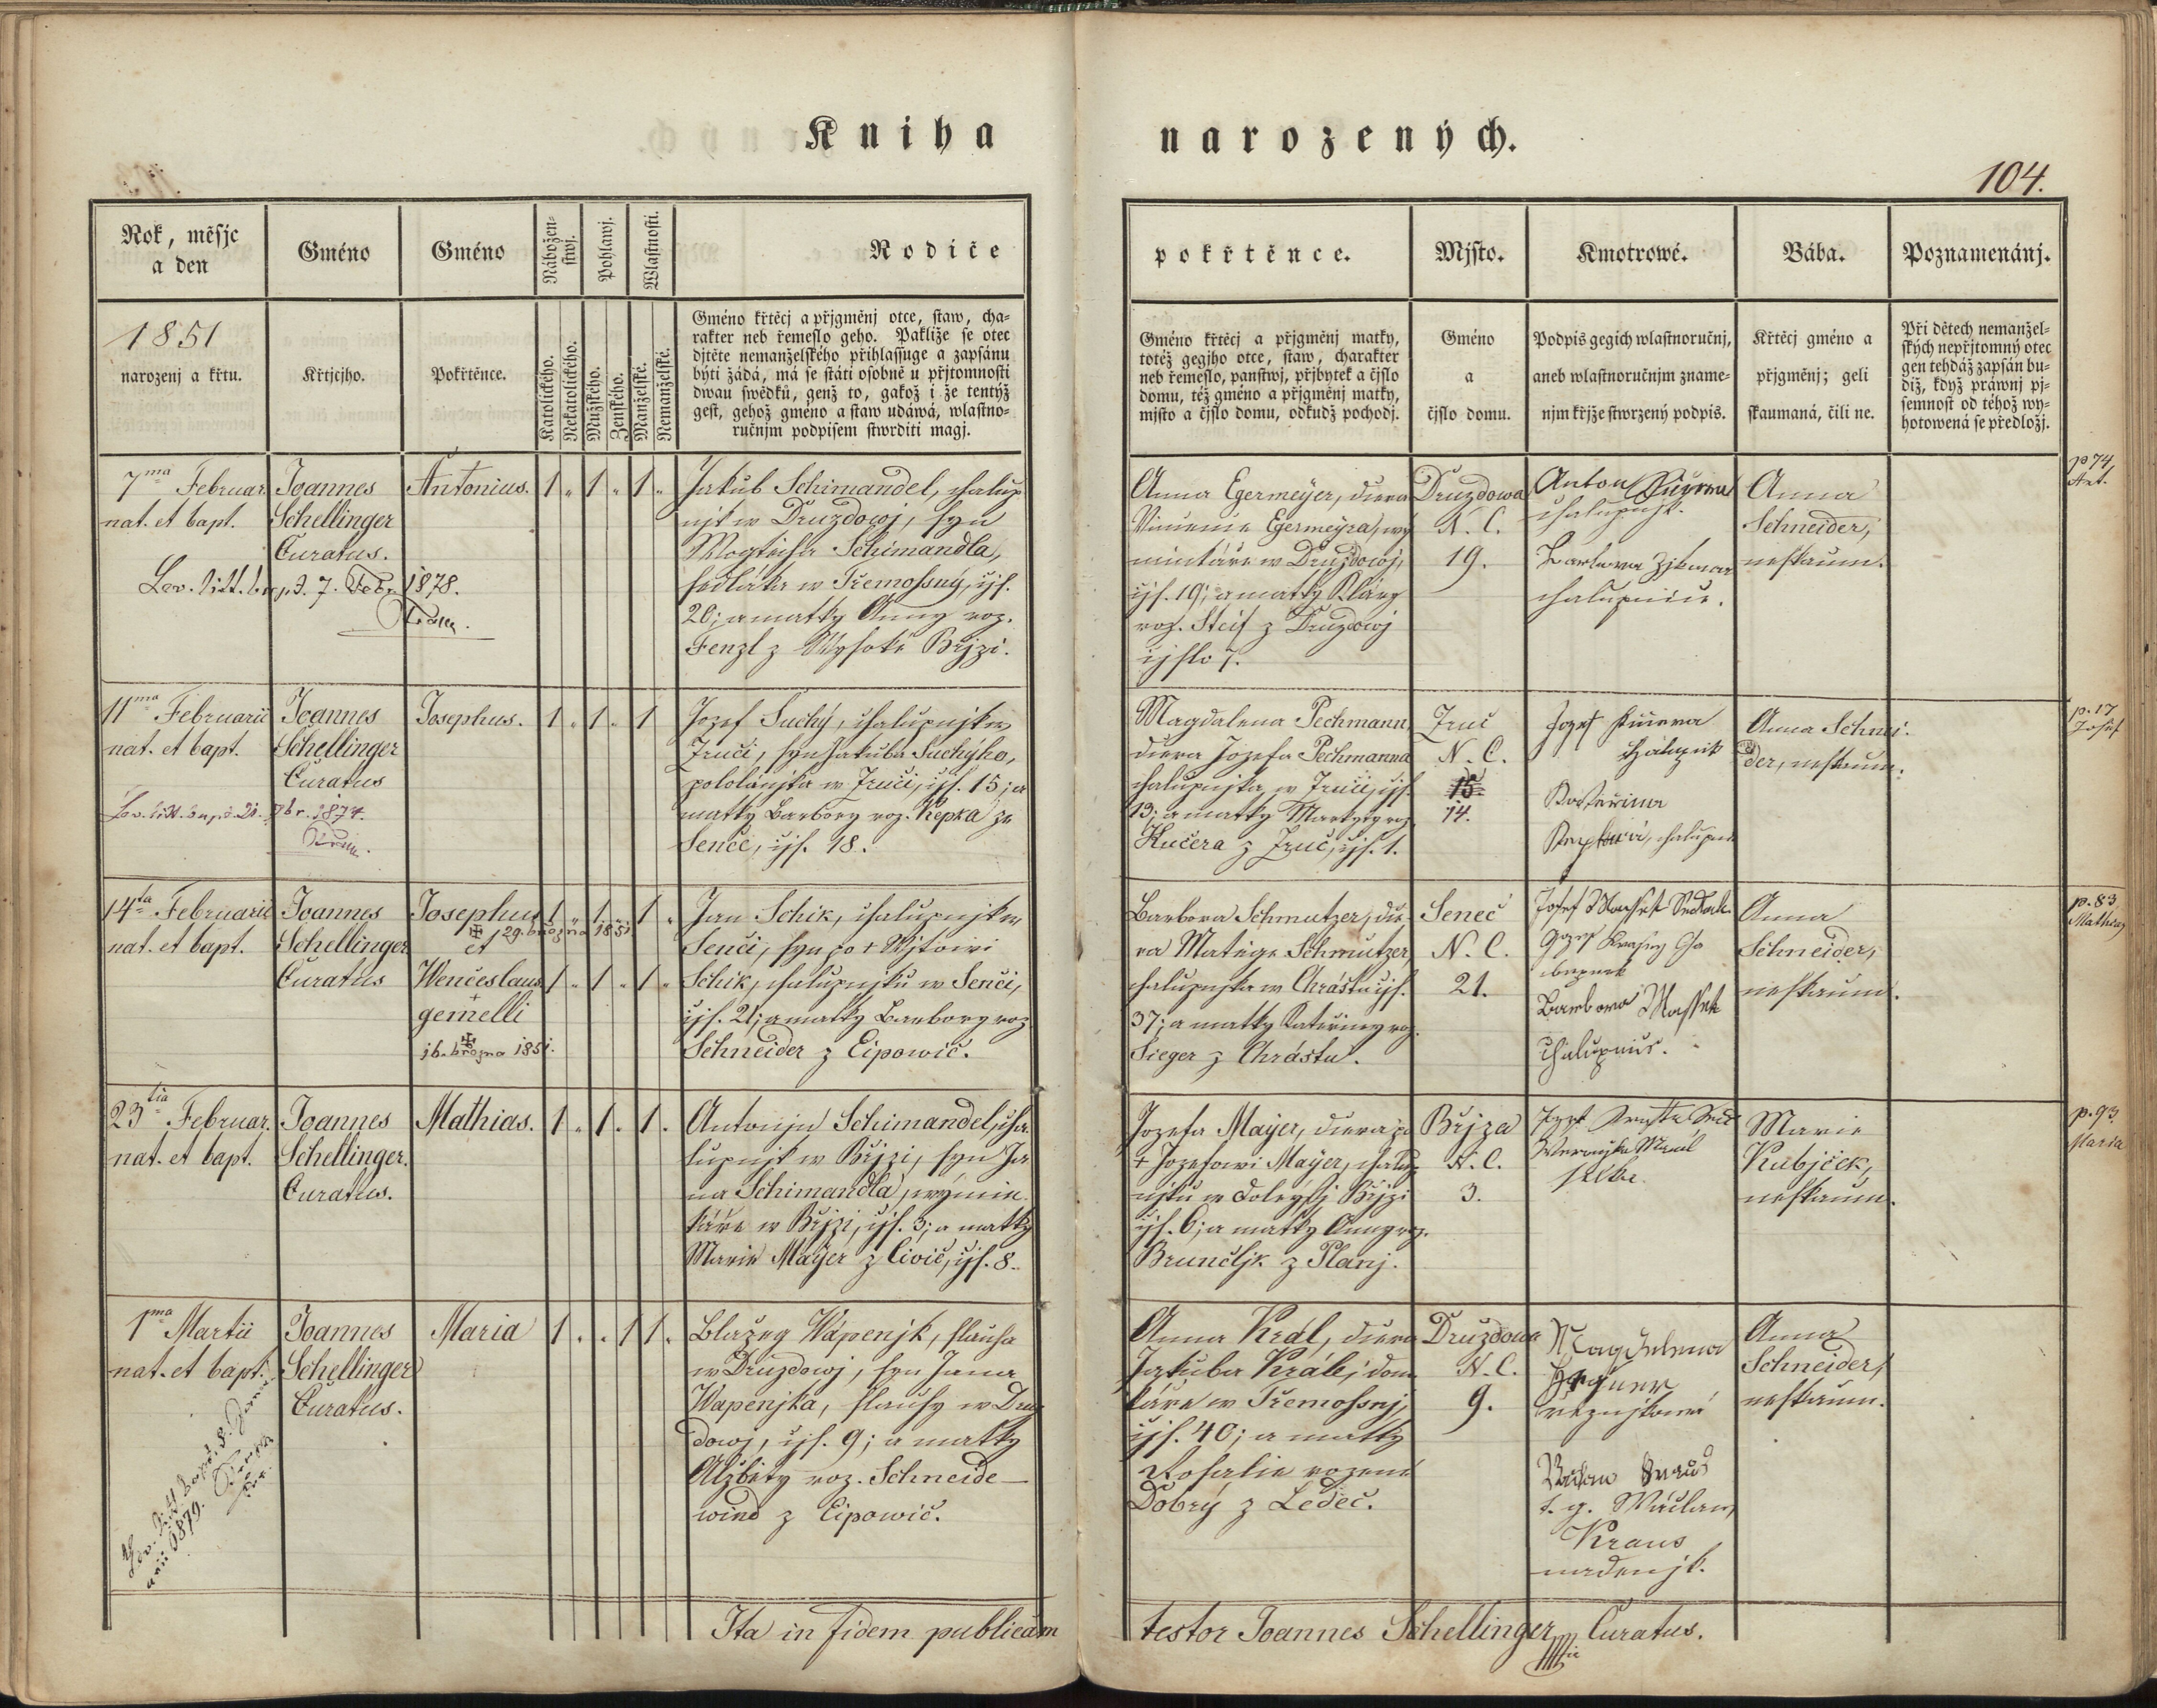 Kniha narozených.
104.
Rok, měsjc
a den
Gméno
Gméno
Nábožen-
stwj.
Pohlawj.
Wlastnosti.
Rodiče
1851
narozenj a křtu.
Křtjcjho.
Pokřtěnce.
Katolického.
Nekatolického.
Mužského.
Ženského.
Manželské.
Nemanželské.
Gméno křtěcj a přjgměnj otce, staw, cha-
rakter neb řemeslo geho. Pakliže se otec
djtěte nemanželského přihlassuge a zapsánu
býti žádá, má se státi osobně u přjtomnosti
dwau swědků, genž to, gakož i že tentýž
gest, gehož gméno a staw udáwá, wlastno-
ručnjm podpisem stwrditi magj.
pokřtěnce.
Mjsto.
Kmotrowé.
Bába.
Poznamenánj.
Gméno křtěcj a přjgměnj matky,
totéž gegjho otce, staw, charakter
neb řemeslo, panstwj, přjbytek a čjslo
domu, též gméno a přjgměnj matky,
mjsto a čjslo domu, odkudž pocházj.
Gméno
a
čjslo domu.
Podpis gegich wlastnoručnj,
aneb wlastnoručnjm zname-
njm křjže stwrzený podpis.
Křtěcj gméno a
přjgměnj; geli
skaumaná, čili ne.
Při dětech nemanžel-
ských nepřjtomný otec
gen tehdáž zapsán bu-
diž, když práwnj pj-
semnost od téhož wy-
hotowená se předložj.
7ma Februar.
nat. et bapt.
Joannes
Schellinger
Curatus.
Antonius.
1 " 1 " 1 "
Jakub Schimandel, chalup
njk w Druzdowj, syn
Wogtěcha Schimandla,
sedláka w Třemossný, čjs.
20; a matky Anny roz.
Fenzl z Wysoké Břjzi.
7. Febr. 1878.
Anna Egermeyer, dcera
Vincence Egermeyra, wý
minkáře w Druzdowj,
čjs. 19; a matky Kláry
roz. Steif z Druzdowj
čjslo 7.
Druzdowa
N. C.
19.
Anton
chalupnjk.
Barbora
chalupnice.
Anna
Schneider,
neskaum.
p 74
Ant.
11ma Februarii
nat. et bapt.
Joannes
Schellinger
Curatus
Josephus.
1 " 1 " 1
Jozef Suchý, chalupnjk w
Zruči, syn Jakuba Suchýho,
pololánjka w Zruči, čjs. 15; a
matky Barbory roz. Kepka ze
Senče, čjs. 18.
1874.
Magdalena Pechmann,
dcera Jozefa Pechmanna
chalupnjka w Zruči, čjs.
13; a matky Markyty roz.
Kučera z Zruč, čjs. 1.
Zruč
N. C.
15
14.
Jozef Kučera
Kateřina
Anna Schnei-
der, neskaum.
p. 17
Josef
14ta Februarii
nat. et bapt.
Joannes
Schellinger
Curatus
Josephus
29. března 1851
et
Wenceslaus
gemelli
16. března 1851.
1 " 1 " 1 "
1 " 1 " 1 "
Jan Schik, chalupnjk w
Senči, syn po + Wjtowi
Schik, chalupnjku w Senči,
čjs. 21; a matky Barbory roz.
Schneider z Eipowic.
Barbora Schmutzer, dce-
ra Matěge Schmutzer,
chalupnjka w Chrástu čjs.
37; a matky Kateřiny roz.
Sieger z Chrástu.
Seneč
N. C.
21.
Josef
Barbora
chalupnice.
Anna
Schneider,
neskaum.
p. 83
Mathias
23tia Februar.
nat. et bapt.
Joannes
Schellinger.
Curatus.
Mathias.
1 " 1 . 1 .
Antonjn Schimandel, cha
lupnjk w Břjzi, syn Ja
na Schimandla, wýmin
káře w Břjzi, čjs. 3; a matky
Marie Mayer z Civic, čjs. 8.
Jozefa Mayer, dcera po
+ Jozefowi Mayer, chalup
njku w Doleyssj Břjzi
čjs. 6; a matky Anny roz.
Brunčljk z Planj.
Břjza
N. C.
3.
Marie
Kubjček,
neskaum.
p. 93.
Maria
1ma Martii
nat. et bapt.
Joannes
Schellinger
Curatus.
Maria
1 . . 1 1 .
Blažeg Wápenjk, slauha
w Druzdowj, syn Jana
Wapenjka, slauhy w Druz
dowj, čjs. 9; a matky
Alžběty roz. Schneide-
wind z Eipowic.
1879.
Anna Král, dcera
Jakuba Krále, dom
káře w Třemossnj,
čjs. 40; a matky
Rosalie rozené
Dobrý z Ledec.
Druzdowa
N. C.
9.
Magdalena
Wáclaw
Kraus
Anna
Schneider,
neskaum.
Ita in fidem publicam testor Joannes Schellinger Curatus.